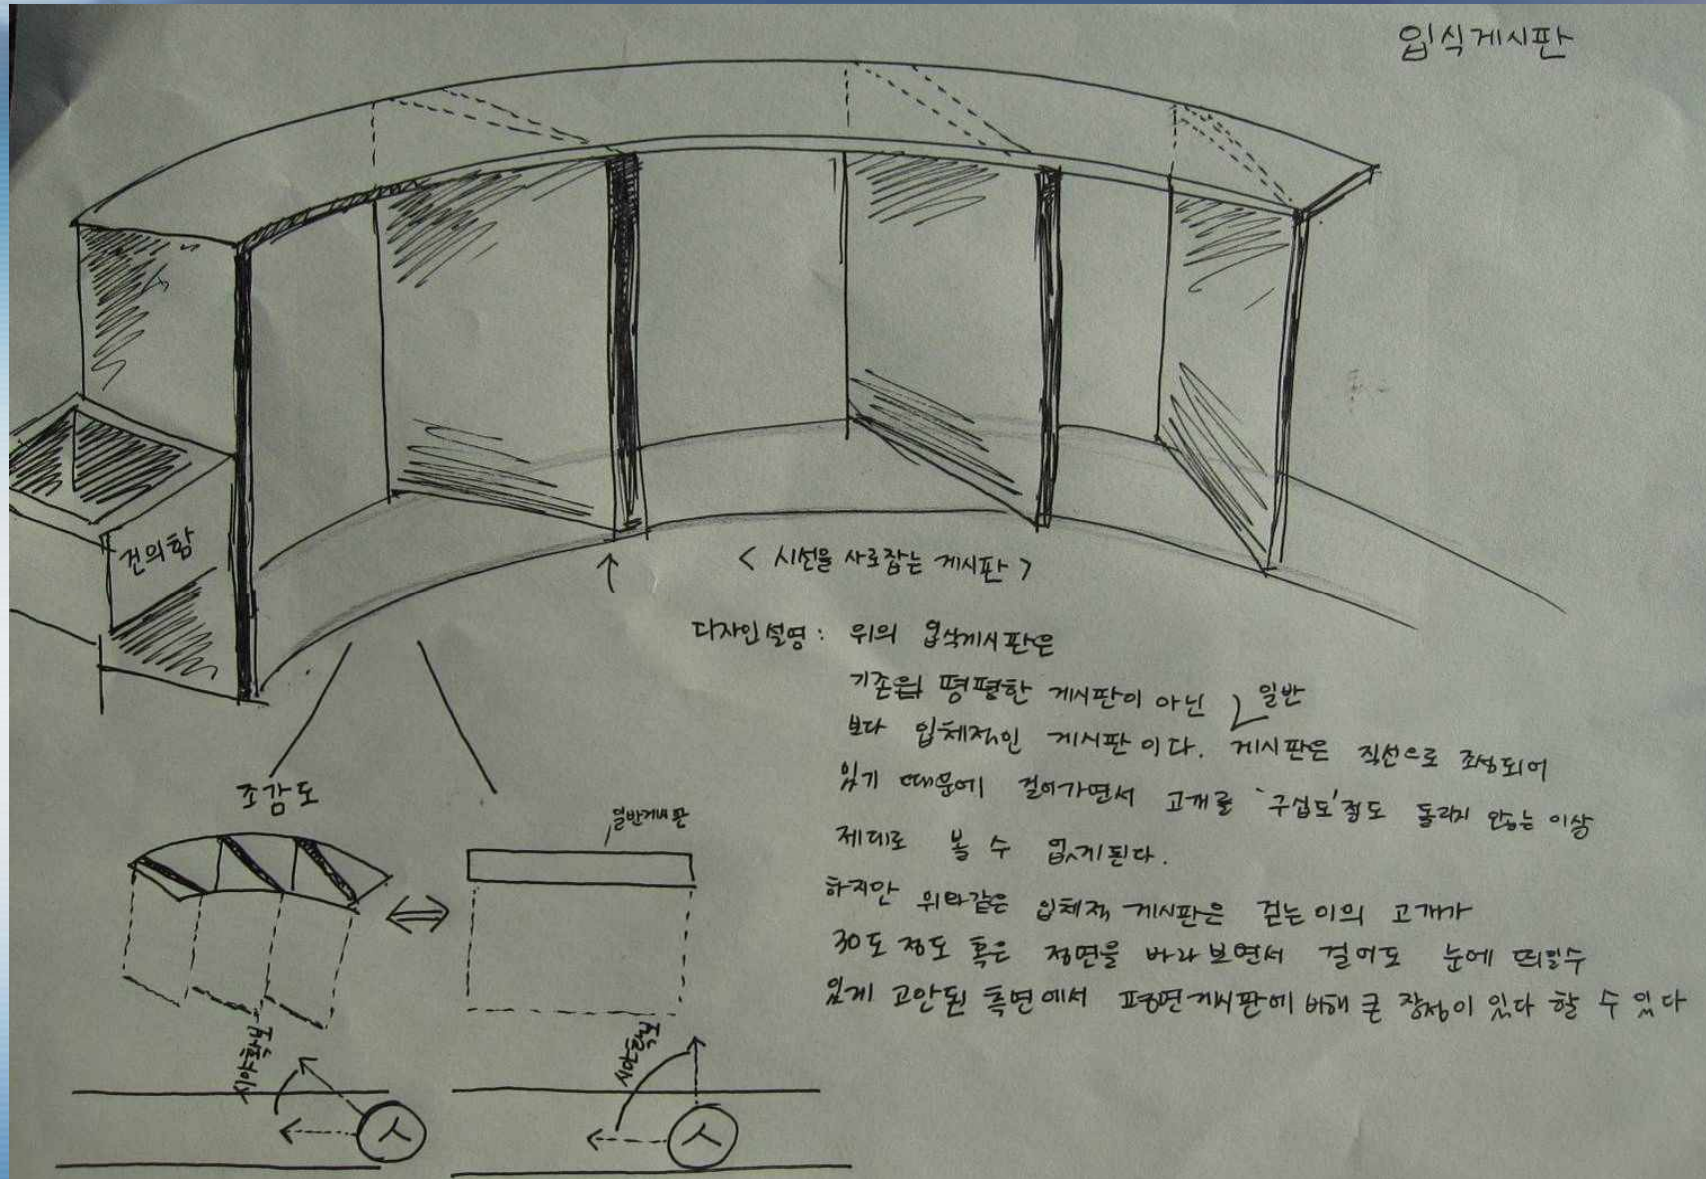 입식게시판
건의함
< 시선을 사로잡는 게시판 >
디자인설명 : 위의 입식게시판은
기존의 평평한 게시판이 아닌
보다 입체적인 게시판이다. 일반 게시판은 직선으로 조성되어
있기 때문에 걸어가면서 고개를 '구십도'정도 돌리지 않는 이상
제대로 볼 수 없게된다.
하지만 위와같은 입체적 게시판은 걷는이의 고개가
30도 정도 혹은 정면을 바라보면서 걸어도 눈에 띄일수
있게 고안된 측면에서 평면게시판에 비해 큰 장점이 있다 할 수 있다
조감도
일반게시판
시야
시야